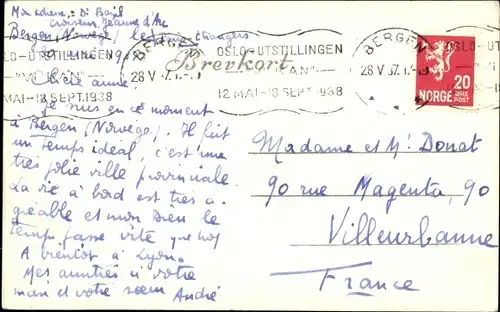 Mon adresse : Di Basil
Croiseur Jeanne d'Arc
Bergen, Norvège,
OSLO-UTSTILLINGEN
"VI KAN"
12 MAI-18 SEPT. 1938
BERGEN
28 V 37.
Brevkort
OSLO-UTSTILLINGEN
"VI KAN"
12 MAI-18 SEPT. 1938
BERGEN
28 V 37.
20
NORGE ØRE
POST
Chère amie.
Je suis en ce moment
à Bergen (Norvège). Il fait
un temps idéal, c'est une
très jolie ville provinciale
La vie à bord est très a-
gréable et mon Dieu le
temps passe vite
A bientôt à Lyon.
Mes amitiés à votre
mari et votre sœur André
Madame et Mr Donat
90 rue Magenta, 90
Villeurbanne
France